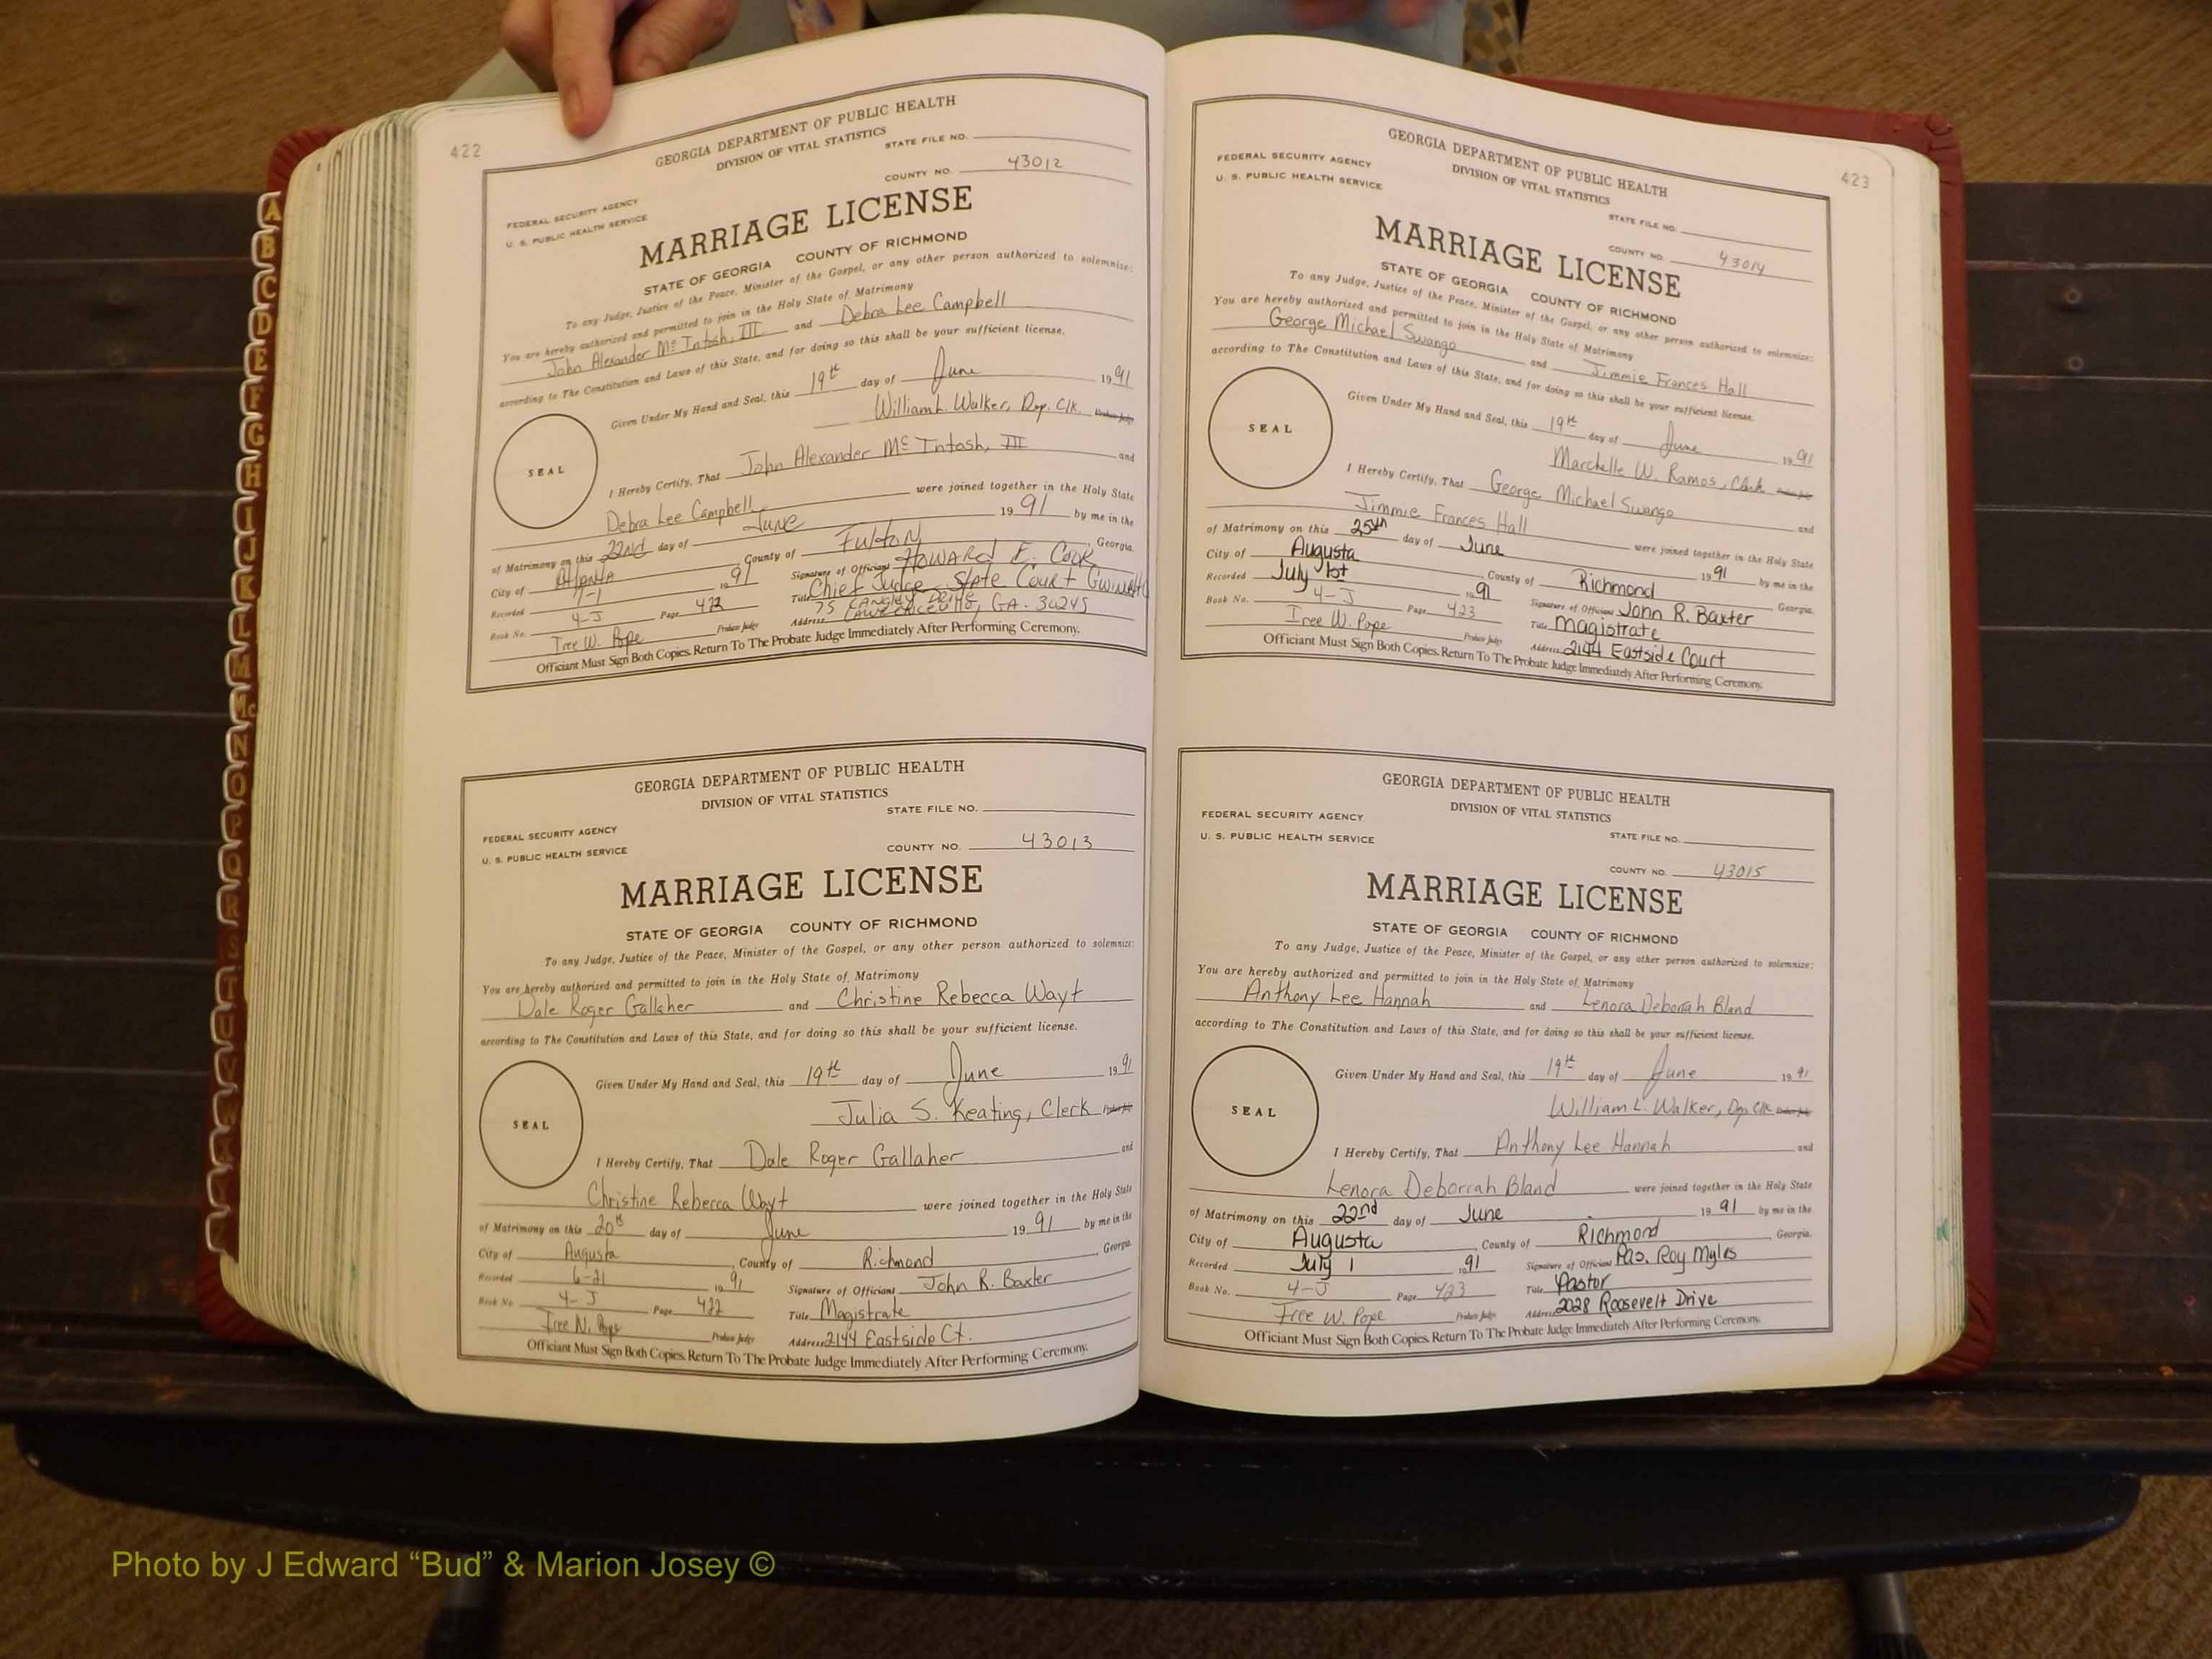 422
GEORGIA DEPARTMENT OF PUBLIC HEALTH
DIVISION OF VITAL STATISTICS
STATE FILE NO.
COUNTY NO. 43012
FEDERAL SECURITY AGENCY
U. S. PUBLIC HEALTH SERVICE
MARRIAGE LICENSE
STATE OF GEORGIA COUNTY OF RICHMOND
To any Judge, Justice of the Peace, Minister of the Gospel, or any other person authorized to solemnize:
You are hereby authorized and permitted to join in the Holy State of Matrimony
John Alexander Mc Intosh, III and Debra Lee Campbell
according to The Constitution and Laws of this State, and for doing so this shall be your sufficient license.
Given Under My Hand and Seal, this 19th day of June 1991
William L. Walker, Dep. Clk. Probate Judge
SEAL
I Hereby Certify, That John Alexander Mc Intosh, III and
Debra Lee Campbell were joined together in the Holy State
of Matrimony on this 22nd day of June 1991 by me in the
City of Atlanta County of Fulton, Georgia.
Recorded 7-1 1991 Signature of Officiant Howard E. Cook
Book No. 4-J Page 422 Title Chief Judge State Court Gwinnett
75 Langley Drive
Address Lawrenceville, GA. 30245
Iree W. Pope Probate Judge
Officiant Must Sign Both Copies. Return To The Probate Judge Immediately After Performing Ceremony.
GEORGIA DEPARTMENT OF PUBLIC HEALTH
DIVISION OF VITAL STATISTICS
STATE FILE NO.
FEDERAL SECURITY AGENCY
U. S. PUBLIC HEALTH SERVICE
COUNTY NO. 43013
MARRIAGE LICENSE
STATE OF GEORGIA COUNTY OF RICHMOND
To any Judge, Justice of the Peace, Minister of the Gospel, or any other person authorized to solemnize:
You are hereby authorized and permitted to join in the Holy State of Matrimony
Dale Roger Gallaher and Christine Rebecca Wayt
according to The Constitution and Laws of this State, and for doing so this shall be your sufficient license.
Given Under My Hand and Seal, this 19th day of June 1991
Julia S. Keating, Clerk Probate Judge
SEAL
I Hereby Certify, That Dale Roger Gallaher and
Christine Rebecca Wayt were joined together in the Holy State
of Matrimony on this 20th day of June 1991 by me in the
City of Augusta, County of Richmond, Georgia.
Recorded 6-21 1991 Signature of Officiant John R. Baxter
Book No. 4-J Page 422 Title Magistrate
Iree W. Pope Probate Judge Address 2144 Eastside Ct.
Officiant Must Sign Both Copies. Return To The Probate Judge Immediately After Performing Ceremony.
423
GEORGIA DEPARTMENT OF PUBLIC HEALTH
DIVISION OF VITAL STATISTICS
FEDERAL SECURITY AGENCY
U. S. PUBLIC HEALTH SERVICE
STATE FILE NO.
COUNTY NO. 43014
MARRIAGE LICENSE
STATE OF GEORGIA COUNTY OF RICHMOND
To any Judge, Justice of the Peace, Minister of the Gospel, or any other person authorized to solemnize:
You are hereby authorized and permitted to join in the Holy State of Matrimony
George Michael Swango and Jimmie Frances Hall
according to The Constitution and Laws of this State, and for doing so this shall be your sufficient license.
Given Under My Hand and Seal, this 19th day of June 1991
Marchelle W. Ramos, Clerk Probate Judge
SEAL
I Hereby Certify, That George Michael Swango and
Jimmie Frances Hall were joined together in the Holy State
of Matrimony on this 25th day of June 1991 by me in the
City of Augusta, County of Richmond Georgia.
Recorded July 1st 1991 Signature of Officiant John R. Baxter
Book No. 4-J Page 423 Title Magistrate
Iree W. Pope Probate Judge Address 2144 Eastside Court
Officiant Must Sign Both Copies. Return To The Probate Judge Immediately After Performing Ceremony.
GEORGIA DEPARTMENT OF PUBLIC HEALTH
DIVISION OF VITAL STATISTICS
FEDERAL SECURITY AGENCY
U. S. PUBLIC HEALTH SERVICE
STATE FILE NO.
COUNTY NO. 43015
MARRIAGE LICENSE
STATE OF GEORGIA COUNTY OF RICHMOND
To any Judge, Justice of the Peace, Minister of the Gospel, or any other person authorized to solemnize:
You are hereby authorized and permitted to join in the Holy State of Matrimony
Anthony Lee Hannah and Lenora Deborrah Bland
according to The Constitution and Laws of this State, and for doing so this shall be your sufficient license.
Given Under My Hand and Seal, this 19th day of June 1991
William L. Walker, Dep. Clk. Probate Judge
SEAL
I Hereby Certify, That Anthony Lee Hannah and
Lenora Deborrah Bland were joined together in the Holy State
of Matrimony on this 22nd day of June 1991 by me in the
City of Augusta, County of Richmond Georgia.
Recorded July 1 1991 Signature of Officiant Pas. Roy Myles
Book No. 4-J Page 423 Title Pastor
Iree W. Pope Probate Judge Address 2028 Roosevelt Drive
Officiant Must Sign Both Copies. Return To The Probate Judge Immediately After Performing Ceremony.
A
B
C
D
E
F
G
H
I
J
K
L
M
Mc
N
O
P
Q
R
S
T
U
V
W
Photo by J Edward “Bud” & Marion Josey ©